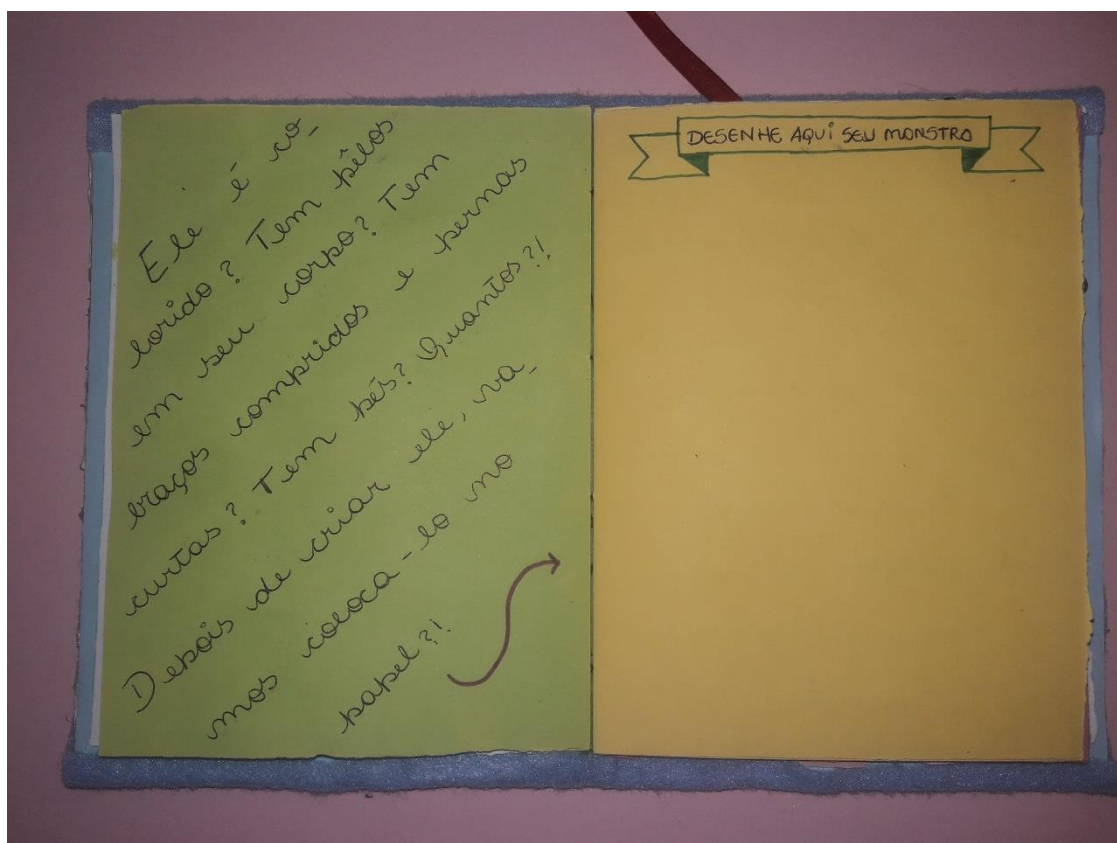 Ele é co-
lorido? Tem pêlos
em seu corpo? Tem
braços compridos e pernas
curtas? Tem pés? Quantos?!
Depois de criar ele, va-
mos coloca-lo no
papel?!
DESENHE AQUI SEU MONSTRO